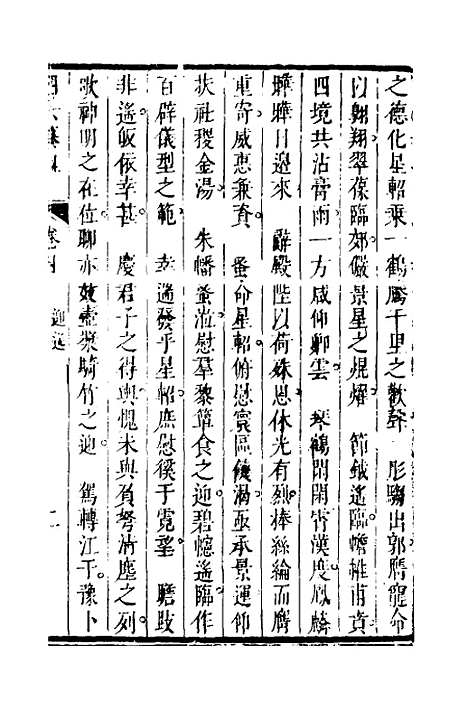 之德化星軺乘一鶴騰千里之歡聲　彤騶出郭膺寵命
以翱翔翠葆臨郊儼景星之焜燿　節鉞遙臨幨帷甫賁
四境共沾膏雨一方咸仰卿雲　琴鶴閒閒霄漢度鳳麟
曄曄日邊來　辭殿陛以荷殊恩休光有烈捧絲綸而膺
重寄威惠兼資　蚤命星軺俯慰寰區傒溯亟承景運仰
扶社稷金湯　朱幡蚤涖慰羣黎簞食之迎碧幰遙臨作
百辟儀型之範　幸遄發乎星軺庶慰徯于霓望　瞻跂
非遙皈依幸甚　慶君子之得輿愧未與負弩清塵之列
歌神明之在位聊亦效壺漿騎竹之迎　駕轉江干豫卜
卷四　迎送